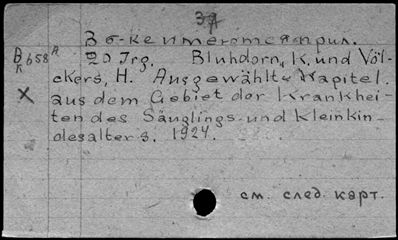 37
20 Jrg. Bluhdorn, K. und Völ-
ckers, H. Ausgewählte Kapitel.
aus dem Gebiet der Krankhei-
ten des Säuglings- und Kleinkin-
desalters. 1924.
см. след. карт.